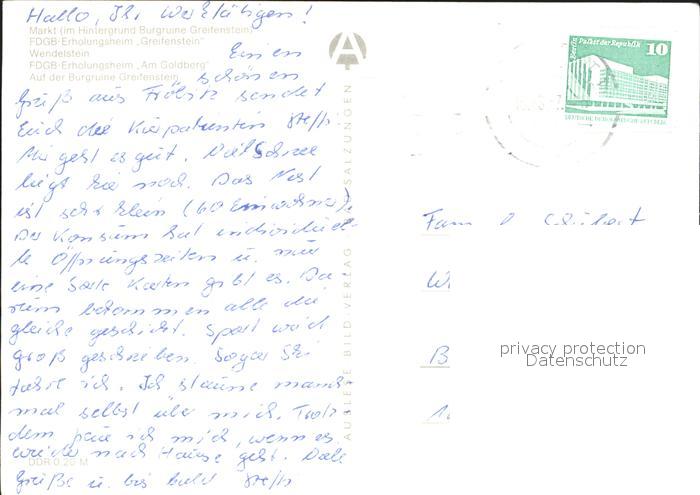 Hallo, Ihr Werktätigen!
Markt (im Hintergrund Burgruine Greifenstein)
FDGB-Erholungsheim „Greifenstein"
Wendelstein
FDGB-Erholungsheim „Am Goldberg"
Auf der Burgruine Greifenstein
Einen
schönen
Gruß aus sendet
Euch die Kurpatientin Steffi.
Mir geht es gut. Viel Schnee
liegt hier noch. Das Nest
ist sehr klein (60 Einwohner).
Der Konsum hat individuel-
le Öffnungszeiten u. nur
eine Sorte Karten gibt es. Da-
rum bekommen alle die
gleiche geschickt. Sport wird
groß geschrieben. Sogar Ski
fahre ich. Ich staune manch-
mal selbst über mich. Trotz-
dem freue ich mich, wenn es
wieder nach Hause geht. Viele
DDR 0,20 M
Grüße u. bis bald Steffi
AUSLESE BILD-VERLAG SALZUNGEN
Berlin Palast der Republik 10
DEUTSCHE DEMOKRATISCHE REPUBLIK
Fam.
W
B
privacy protection
Datenschutz